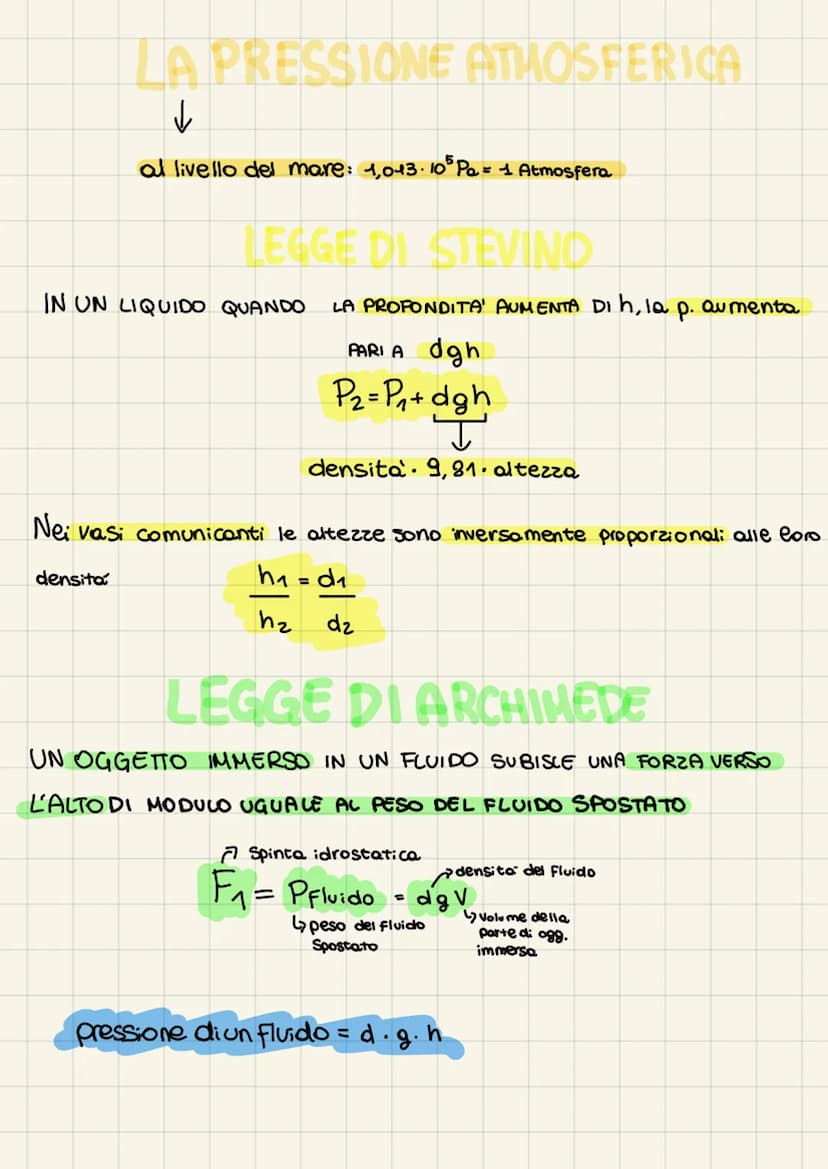 LA PRESSIONE ATMOSFERICA
↓
al livello del mare: 1,013·10⁵ Pa = 1 Atmosfera
LEGGE DI STEVINO
IN UN LIQUIDO QUANDO LA PROFONDITA' AUMENTA DI h, la p. aumenta
PARI A dgh
P₂ = P₁ + dgh
↓
densità · 9,81 · altezza
Nei vasi comunicanti le altezze sono inversamente proporzionali alle loro
densità
h₁ = d₁
h₂ d₂
LEGGE DI ARCHIMEDE
UN OGGETTO IMMERSO IN UN FLUIDO SUBISCE UNA FORZA VERSO
L'ALTO DI MODULO UGUALE AL PESO DEL FLUIDO SPOSTATO
Spinta idrostatica
densità del Fluido
F₁ = PFluido = dgV
peso del Fluido
Spostato
Volume della
parte di ogg.
immersa
pressione di un Fluido = d · g · h